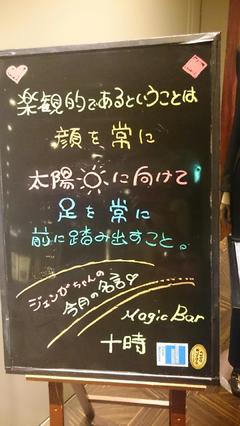 楽観的であるということは
顔を常に
太陽に向けて
足を常に
前に踏み出すこと。
ジェンガちゃんの
今月の名言♡
Magic Bar
十時